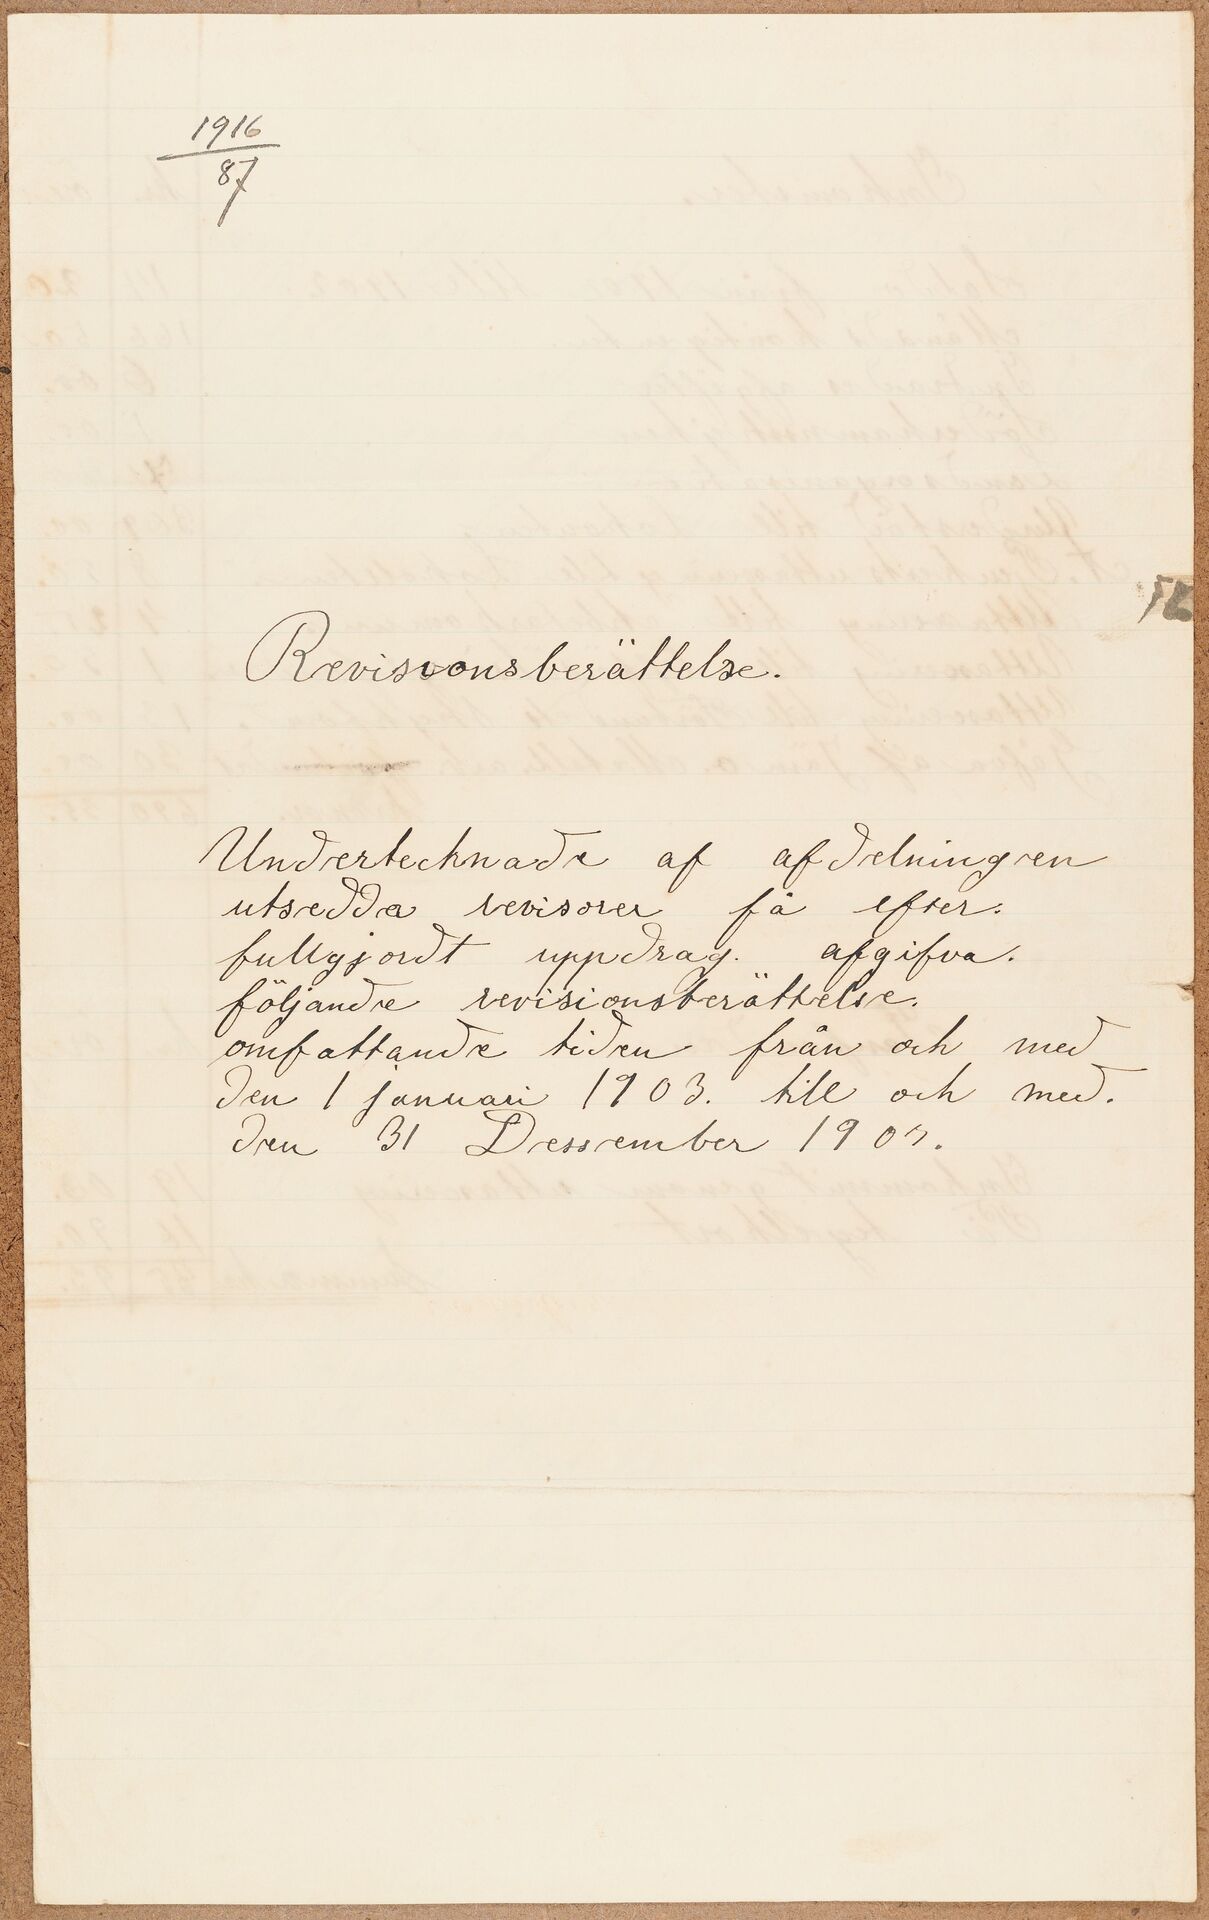 1916
87
Revisionsberättelse.
Undertecknade af afdelningen
utsedda revisorer få efter.
fullgjordt uppdrag. afgifva.
följande revisionsberättelse.
omfattande tiden från och med
den 1 januari 1903. till och med.
den 31 Dessember